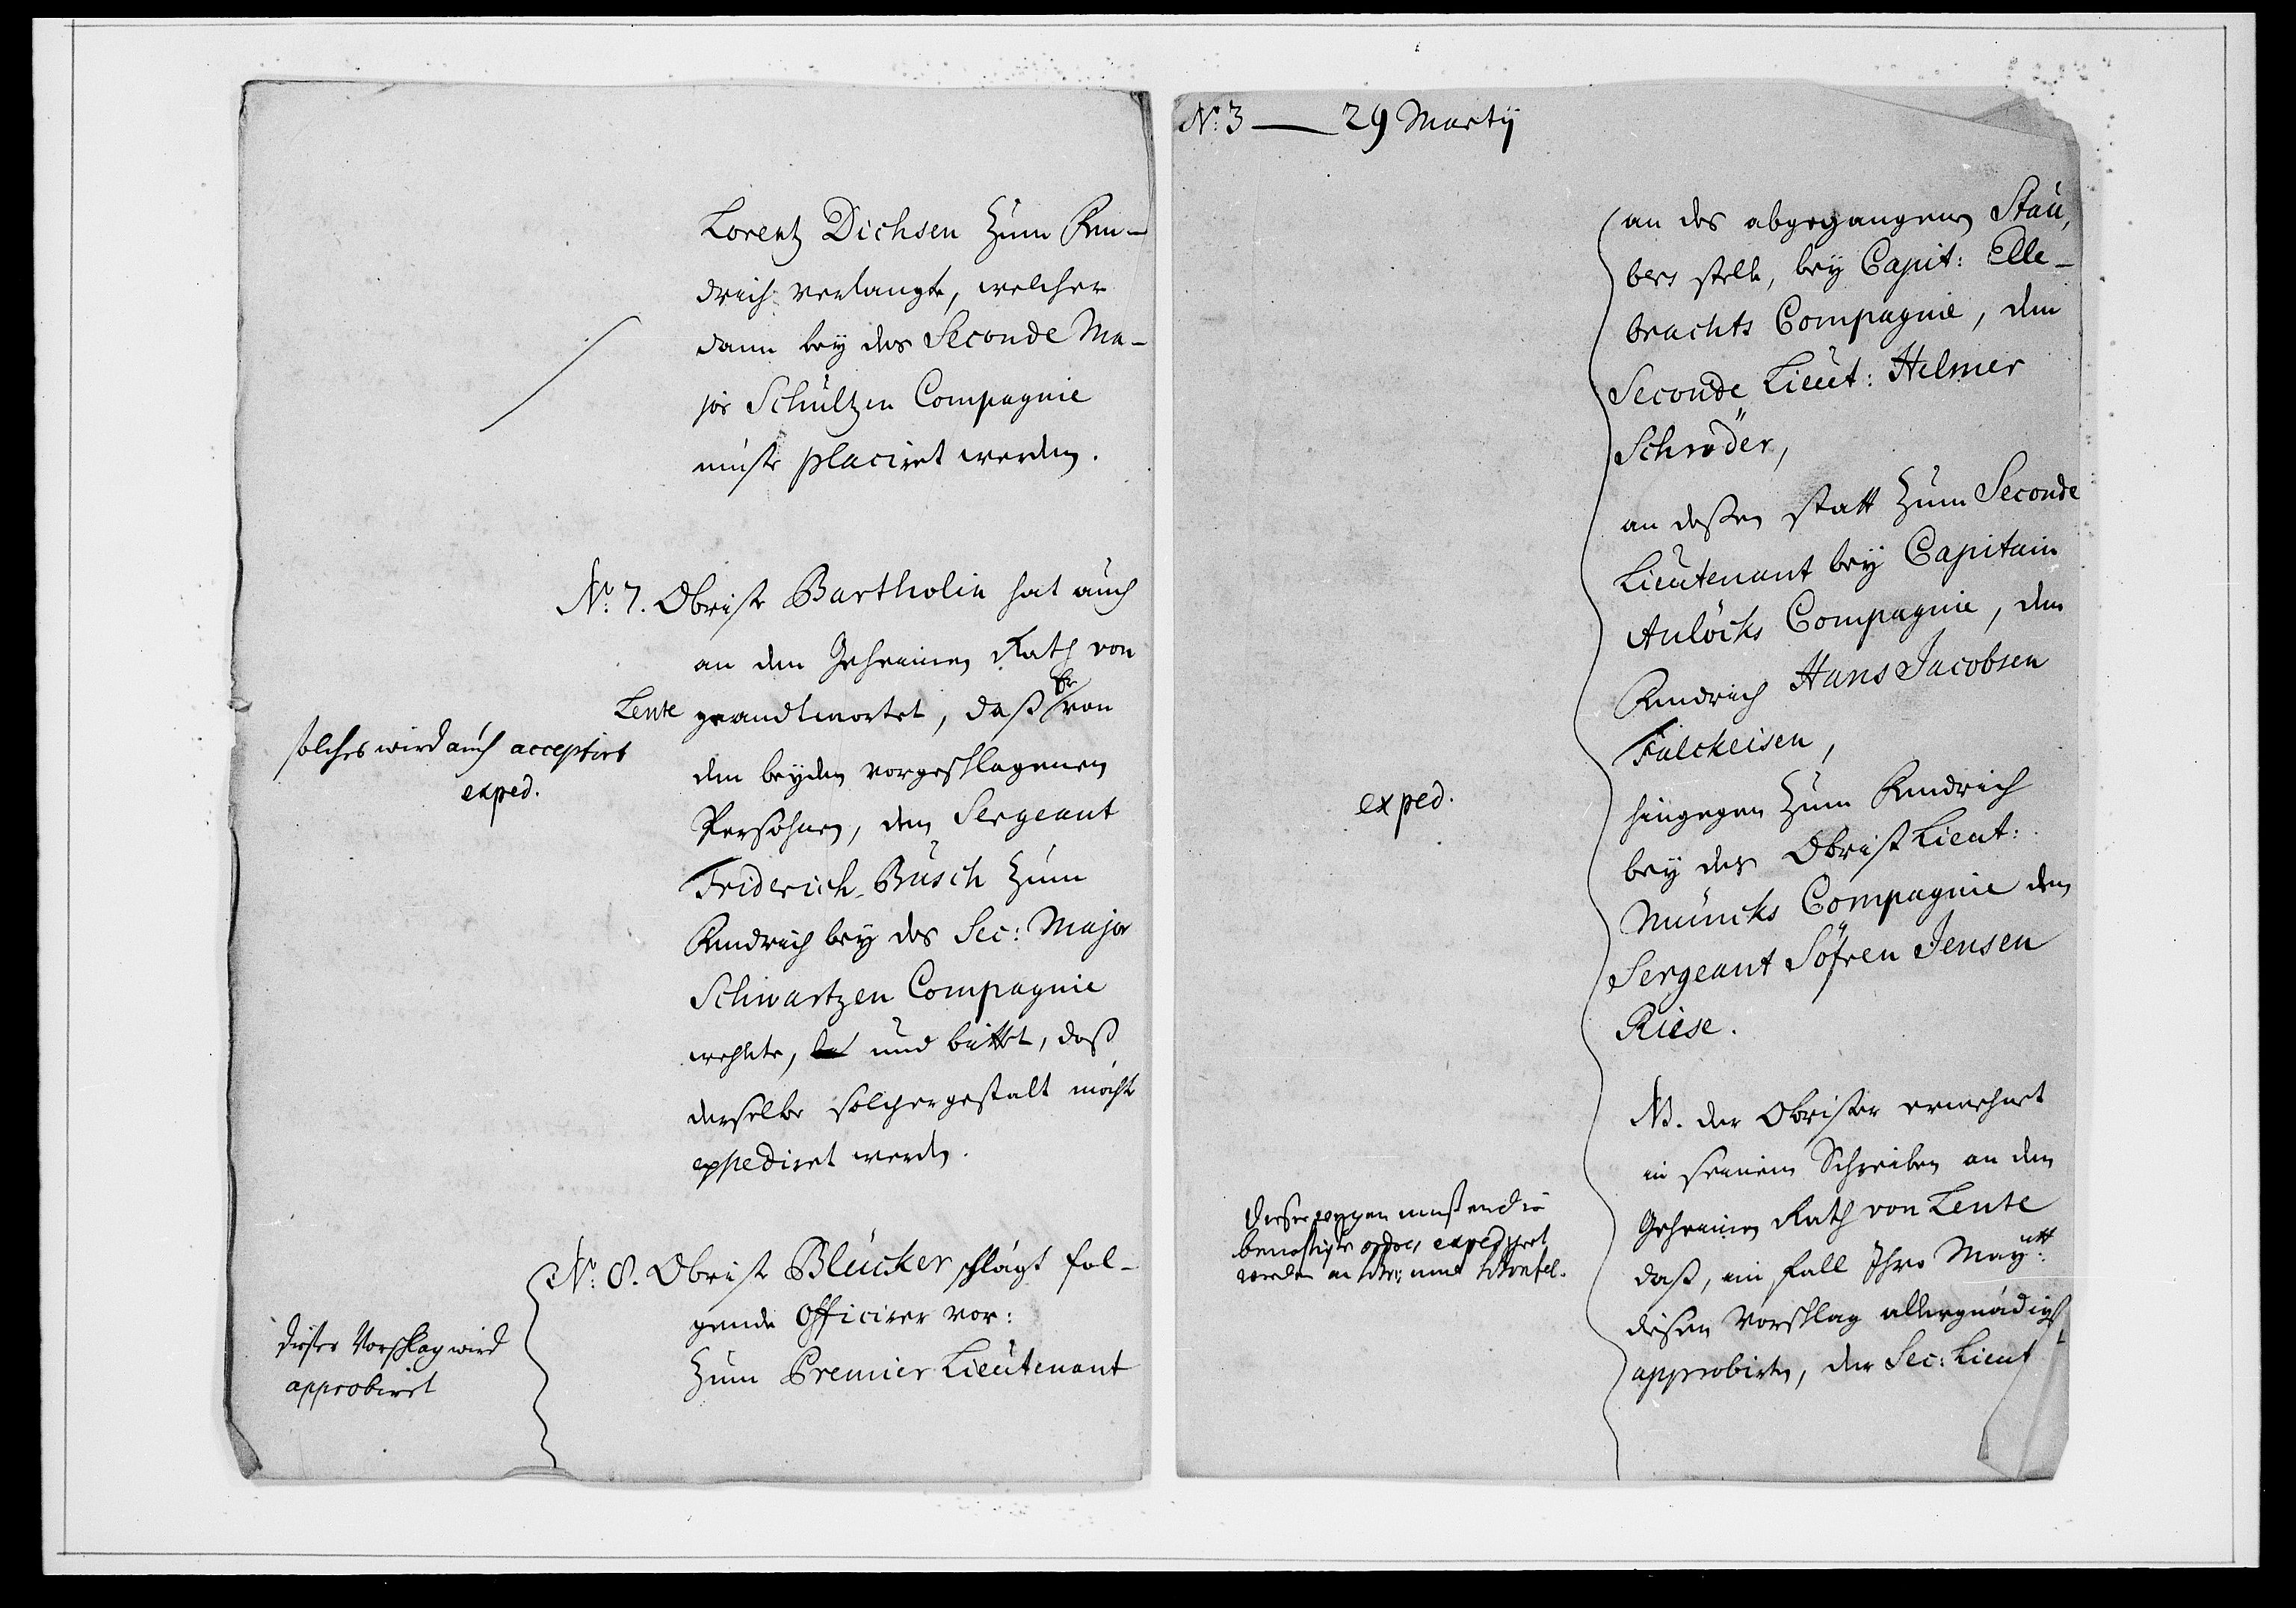 Lorentz Dichsen zum Fen-
drich verlangte, welcher
dann bey des Seconde Ma-
jor Schultzen Compagnie
müste placiret werden.
No: 7. Obrist Bartholin hat auch
an den Geheimen Rath von
Lente geandtwortet, daß Er von
den beyden vorgeschlagenen
Persohnen, den Sergeant
Friderich Busch zum
Fendrich bey des Sec: Major
Schwartzen Compagnie
wehlte, und bittet, daß
derselbe solchergestalt möchte
expediret werden.
solches wird auch acceptirt
exped.
No: 8. Obrist Bleücker schlägt fol-
gende Officirer vor:
Zum Premier Lieutenant
dieser Vorschlag wird
approbiret
No: 3 — 29 Martij
an des abgegangenen Stau,
bers stelle, bey Capit: Elle-
brachts Compagnie, den
Seconde Lieut: Helmer
Schröder,
an deßen statt zum Seconde
Lieutenant bey Capitain
Anlöcks Compagnie, den
Fendrich Hans Jacobsen
Falckeisen,
hingegen zum Fendrich
bey des Obrist Lieut:
Müncks Compagnie den
Sergeant Söfren Jensen
Riese.
exped.
NB. der Obrister erwehnet
in seinem Schreiben an den
Geheimen Rath von Lente
daß, im fall Ihro Maytt:
diesen Vorschlag allergnädigst
approbirten, der Sec: Lieut
dieserwegen müßen die
benöthigte ordres expediret
werden an